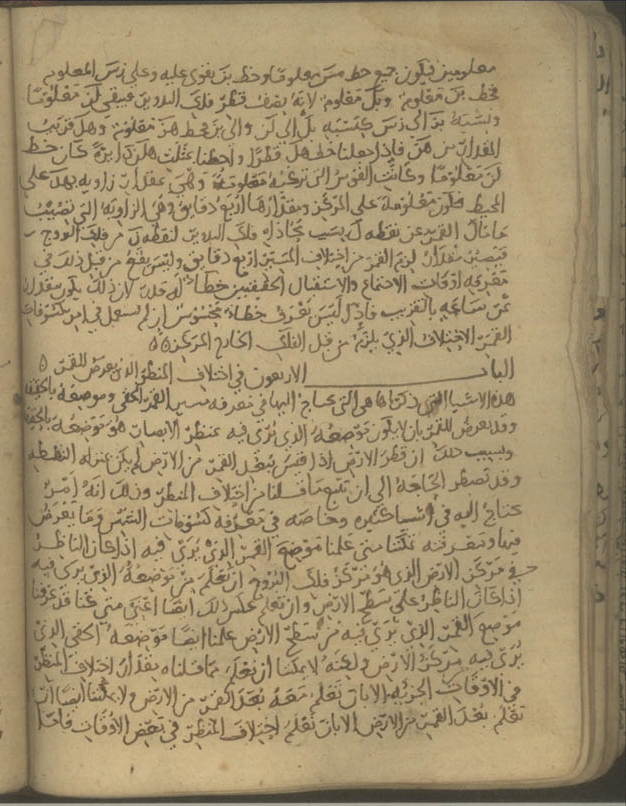 معلومين فيكون جميع خط مس معلوما وخط بن يقوى عليه وعلى زس المعلوم
فخط بن معلوم وبك معلوم لانه نصف قطر فلك التدوير فيبقى لن معلوما
ونسبة بن الى زس كنسبة بل الى لن والى بن خط هن معلومة وهل قريب
المقدار من هن فاذا جعلنا خط هل قطرا واحطنا بمثلث هلن دايرة كان خط
لن معلوما وكانت القوس التي ترتحته معلومة وهي مقدار زاويه بهل على
المحيط فتكون معلومة على المركز ومقدارها اربع دقايق وهي الزاويه التي نصيب
ما نال القمر عن نقطه ل بسبب محاذاه فلك التدوير لنقطه ل من فلك البروج
فيصير مقدار لزم القمر من اختلاف المسير اربع دقايق وليس يقع من قبل ذلك في
معرفه اوقات الاجتماع والاستقبال الحقيقين خطأ له قدر لان ذلك يكون مقدار
ثمن ساعه بالتقريب فاذا ليس يعرض خطاء محسوس ان لم نستعمل في امر كسوفات
القمر الاختلاف الذي يلزمه من قبل الفلك الخارج المركز
الباب الاربعون في اختلاف المنظر الذي يعرض للقمر
هذه الاشيا التي ذكرناها هي التي نحتاج اليها في معرفه مسير القمر الخفي وموضعه بالحقيقه
وقد يعرض للقمر بان لا يكون موضعه الذي يرى فيه بمنظر الابصار هو موضعه بالحقيقه
وبسبب ذلك ان قطر الارض اذا قيس ببعد القمر من الارض لم يكن بمنزله النقطه
وقد تضطر الحاجة الى ان نتبع ما قلنا من اختلاف المنظر وذلك انه امر
نحتاج اليه في اشياء كثيره وخاصه في معرفه كسوفات الشمس وما يعرض
فيها وبمعرفته يمكننا متى علمنا موضع القمر الذي يرى فيه اذا كان الناظر
في مركز الارض الذي هو مركز فلك البروج ان نعلم موضعه الذي يرى فيه
اذا كان الناظر على سطح الارض وان نعلم عكس ذلك ايضا اعني متى كنا قد عرفنا
موضع القمر الذي يرى فيه من سطح الارض علمنا ايضا موضعه الخفي الذي
يرى فيه من مركز الارض ولكنه لا يمكننا ان نعلم بما قلناه مقدار اختلاف المنظر
في الاوقات الجزئيه الا بان نعلم معه بعد القمر من الارض ولا يمكننا ايضا ان
نعلم بعد القمر من الارض الا بان نعلم اختلاف المنظر في بعض الاوقات فاما